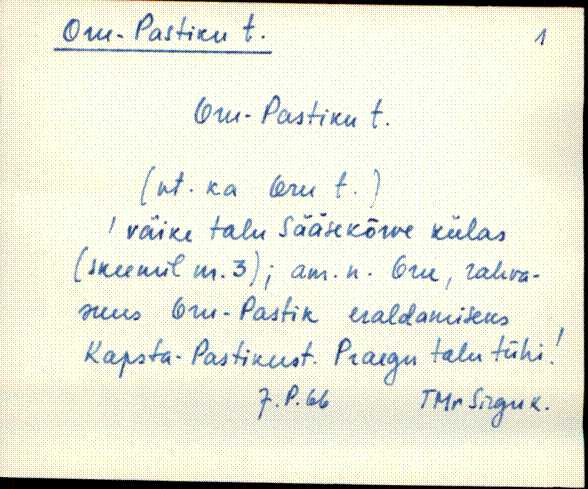 Oru-Pastiku t.
1
Oru-Pastiku t.
(vt. ka Oru t.)
! väike talu Sääsekõrve külas
(skeemil nr. 3); am. n. Oru, rahva-
suus Oru-Pastik eraldamiseks
Kapsta-Pastikust. Praegu talu tühi!
7.P.66